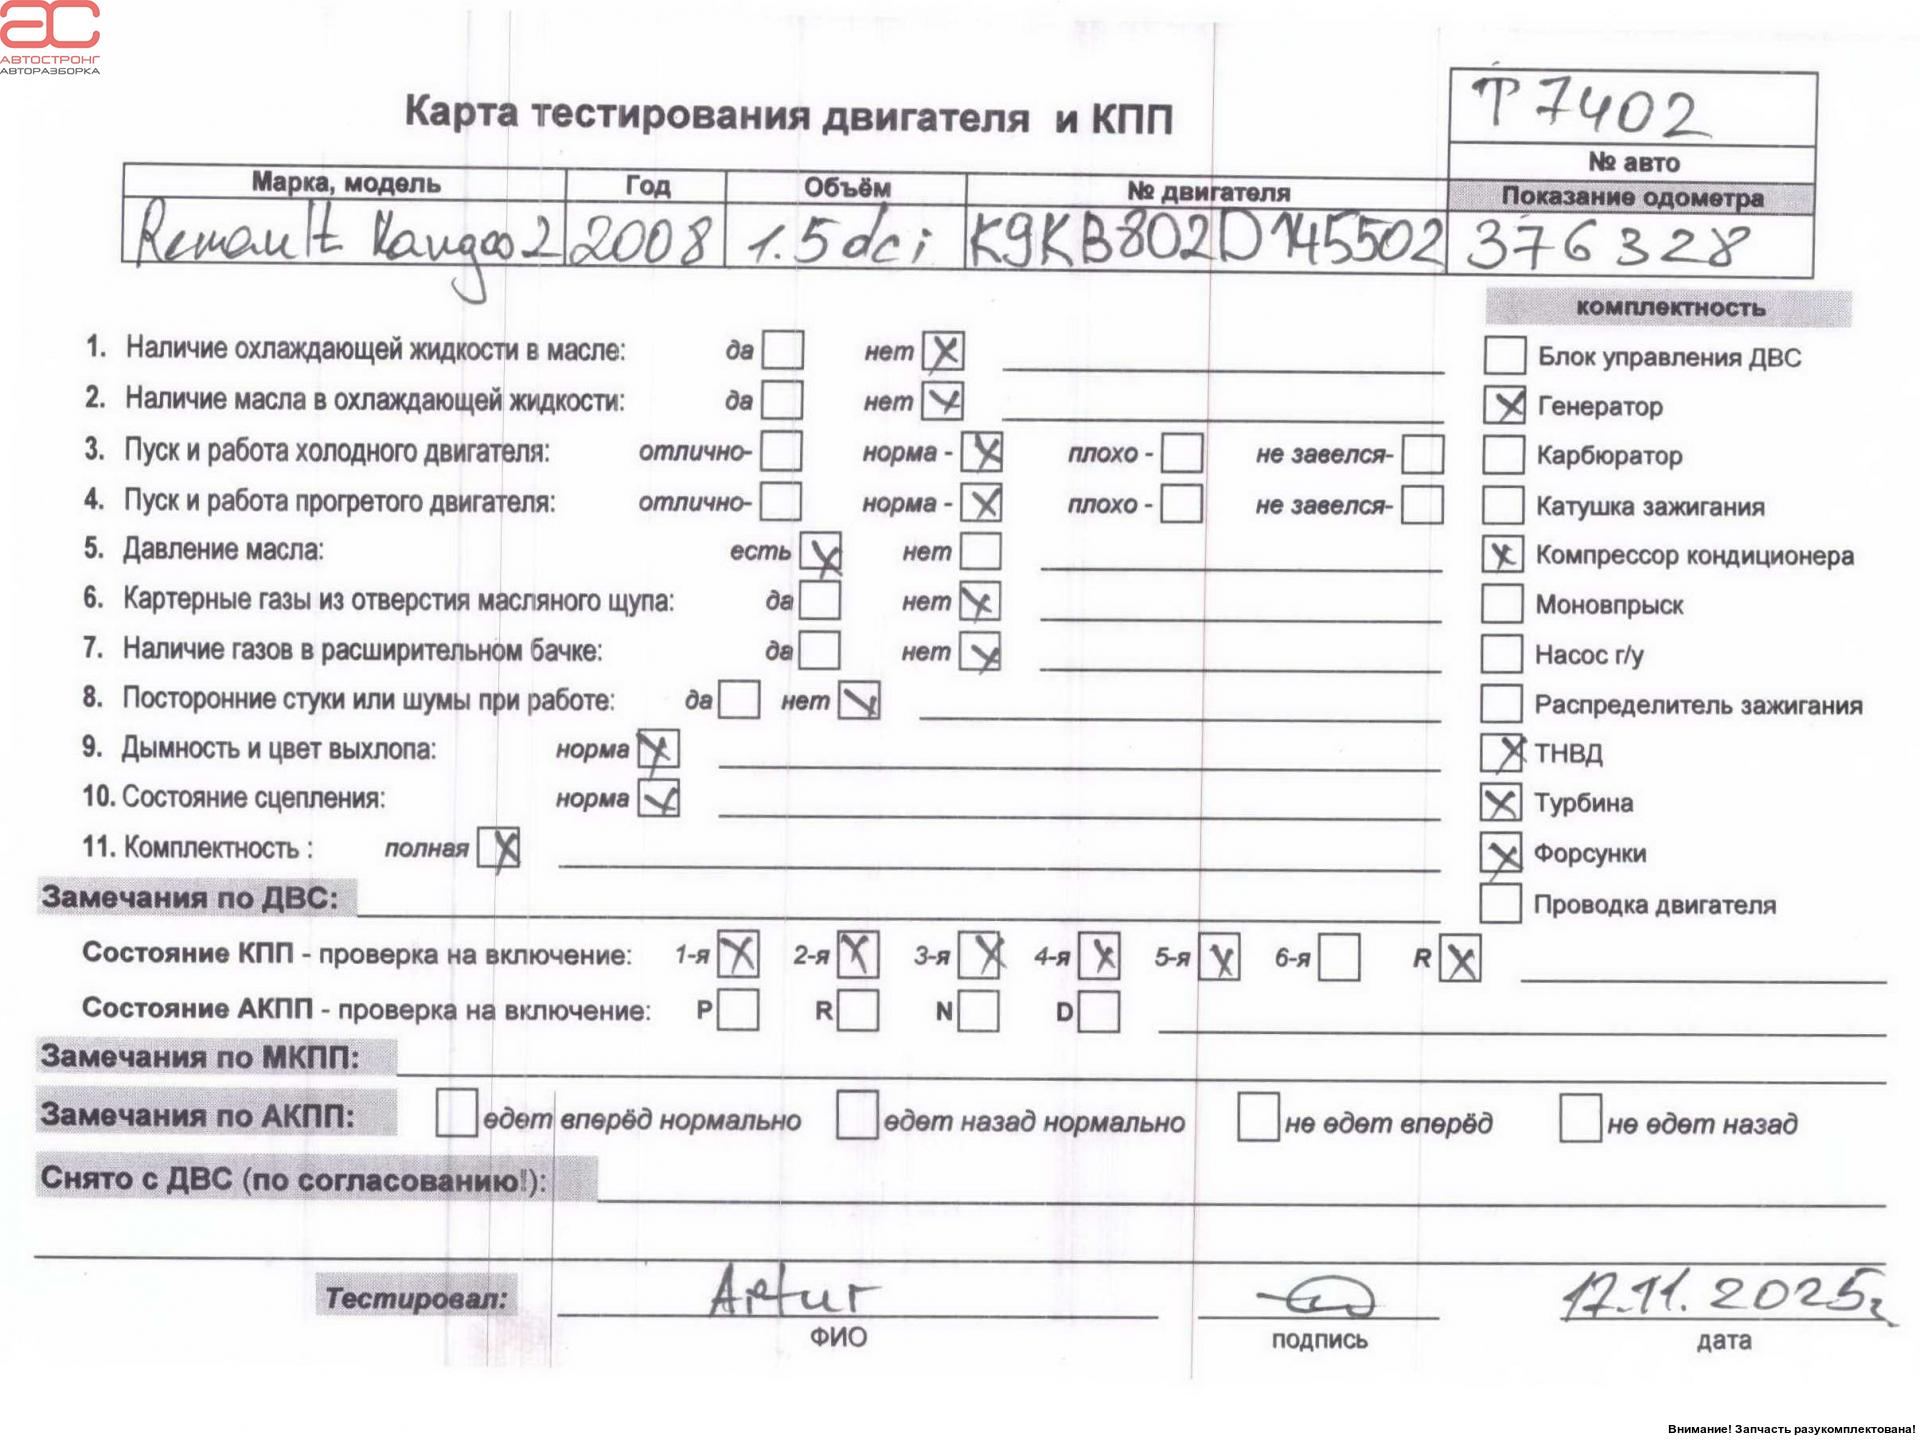 АВТОСТРОНГ
АВТОРАЗБОРКА
Карта тестирования двигателя и КПП
T 7402
№ авто
Марка, модель Год Объём № двигателя Показание одометра
Renault Kangoo 2 2008 1.5 dci K9KB802D145502 376328
комплектность
1. Наличие охлаждающей жидкости в масле: да нет
Блок управления ДВС
2. Наличие масла в охлаждающей жидкости: да нет
Генератор
3. Пуск и работа холодного двигателя: отлично- норма - плохо - не завелся-
Карбюратор
4. Пуск и работа прогретого двигателя: отлично- норма - плохо - не завелся-
Катушка зажигания
5. Давление масла: есть нет
Компрессор кондиционера
6. Картерные газы из отверстия масляного щупа: да нет
Моновпрыск
7. Наличие газов в расширительном бачке: да нет
Насос г/у
8. Посторонние стуки или шумы при работе: да нет
Распределитель зажигания
9. Дымность и цвет выхлопа: норма
ТНВД
10. Состояние сцепления: норма
Турбина
11. Комплектность : полная
Форсунки
Замечания по ДВС:
Проводка двигателя
Состояние КПП - проверка на включение: 1-я 2-я 3-я 4-я 5-я 6-я R
Состояние АКПП - проверка на включение: P R N D
Замечания по МКПП:
Замечания по АКПП: едет вперёд нормально едет назад нормально не едет вперёд не едет назад
Снято с ДВС (по согласованию!):
Тестировал: Artur 17.11.2025г
ФИО подпись дата
Внимание! Запчасть разукомплектована!